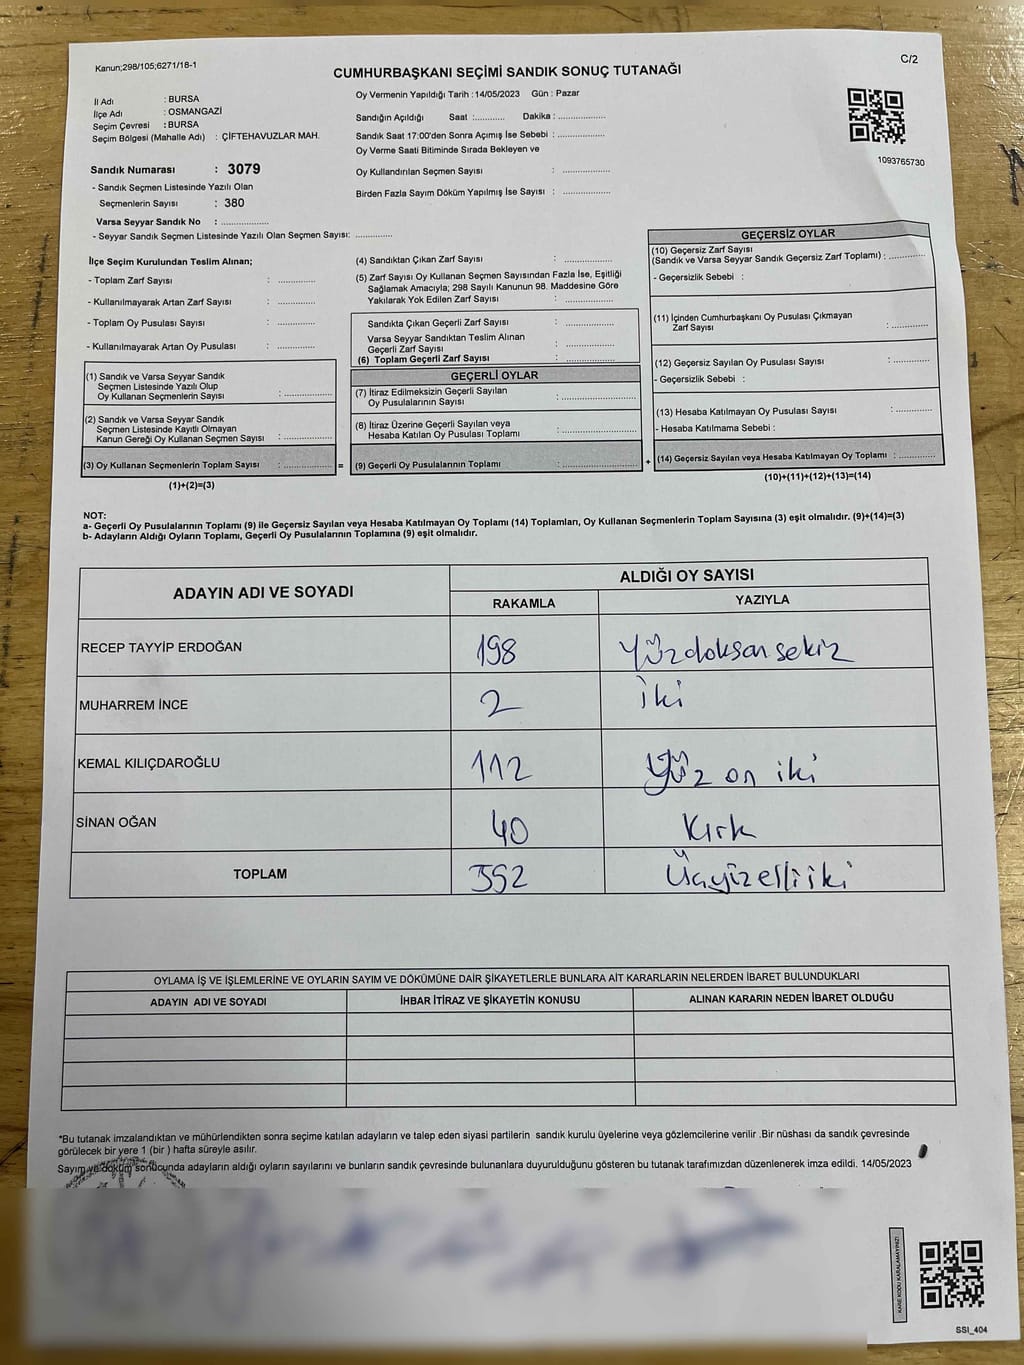 Kanun;298/105;6271/18-1
C/2
CUMHURBAŞKANI SEÇİMİ SANDIK SONUÇ TUTANAĞI
İl Adı : BURSA
İlçe Adı : OSMANGAZİ
Seçim Çevresi : BURSA
Seçim Bölgesi (Mahalle Adı) : ÇİFTEHAVUZLAR MAH.
Oy Vermenin Yapıldığı Tarih : 14/05/2023 Gün : Pazar
Sandığın Açıldığı Saat :........... Dakika : ................
Sandık Saat 17:00'den Sonra Açımış İse Sebebi : ................
Oy Verme Saati Bitiminde Sırada Bekleyen ve
Oy Kullandırılan Seçmen Sayısı : ................
Birden Fazla Sayım Döküm Yapılmış İse Sayısı : ................
1093765730
Sandık Numarası : 3079
- Sandık Seçmen Listesinde Yazılı Olan
Seçmenlerin Sayısı : 380
Varsa Seyyar Sandık No : ................
- Seyyar Sandık Seçmen Listesinde Yazılı Olan Seçmen Sayısı: ............
İlçe Seçim Kurulundan Teslim Alınan;
- Toplam Zarf Sayısı : ............
- Kullanılmayarak Artan Zarf Sayısı : ............
- Toplam Oy Pusulası Sayısı : ............
- Kullanılmayarak Artan Oy Pusulası : ............
(1) Sandık ve Varsa Seyyar Sandık
Seçmen Listesinde Yazılı Olup
Oy Kullanan Seçmenlerin Sayısı : ................
(2) Sandık ve Varsa Seyyar Sandık
Seçmen Listesinde Kayıtlı Olmayan
Kanun Gereği Oy Kullanan Seçmen Sayısı : ................
(3) Oy Kullanan Seçmenlerin Toplam Sayısı : ................
(1)+(2)=(3)
(4) Sandıktan Çıkan Zarf Sayısı : ................
(5) Zarf Sayısı Oy Kullanan Seçmen Sayısından Fazla İse, Eşitliği
Sağlamak Amacıyla; 298 Sayılı Kanunun 98. Maddesine Göre
Yakılarak Yok Edilen Zarf Sayısı : ................
Sandıkta Çıkan Geçerli Zarf Sayısı : ................
Varsa Seyyar Sandıktan Teslim Alınan
Geçerli Zarf Sayısı : ................
(6) Toplam Geçerli Zarf Sayısı : ................
GEÇERLİ OYLAR
(7) İtiraz Edilmeksizin Geçerli Sayılan
Oy Pusulalarının Sayısı : ................
(8) İtiraz Üzerine Geçerli Sayılan veya
Hesaba Katılan Oy Pusulası Toplamı : ................
=
(9) Geçerli Oy Pusulalarının Toplamı : ................
+
GEÇERSİZ OYLAR
(10) Geçersiz Zarf Sayısı
(Sandık ve Varsa Seyyar Sandık Geçersiz Zarf Toplamı) : ............
- Geçersizlik Sebebi :
(11) İçinden Cumhurbaşkanı Oy Pusulası Çıkmayan
Zarf Sayısı : ............
(12) Geçersiz Sayılan Oy Pusulası Sayısı : ............
- Geçersizlik Sebebi :
(13) Hesaba Katılmayan Oy Pusulası Sayısı : ............
- Hesaba Katılmama Sebebi :
(14) Geçersiz Sayılan veya Hesaba Katılmayan Oy Toplamı : ............
(10)+(11)+(12)+(13)=(14)
NOT:
a- Geçerli Oy Pusulalarının Toplamı (9) ile Geçersiz Sayılan veya Hesaba Katılmayan Oy Toplamı (14) Toplamları, Oy Kullanan Seçmenlerin Toplam Sayısına (3) eşit olmalıdır. (9)+(14)=(3)
b- Adayların Aldığı Oyların Toplamı, Geçerli Oy Pusulalarının Toplamına (9) eşit olmalıdır.
ADAYIN ADI VE SOYADI
ALDIĞI OY SAYISI
RAKAMLA YAZIYLA
RECEP TAYYİP ERDOĞAN 198 Yüzdoksan sekiz
MUHARREM İNCE 2 iki
KEMAL KILIÇDAROĞLU 112 Yüz on iki
SİNAN OĞAN 40 Kırk
TOPLAM 352 Üçyüzelliiki
OYLAMA İŞ VE İŞLEMLERİNE VE OYLARIN SAYIM VE DÖKÜMÜNE DAİR ŞİKAYETLERLE BUNLARA AİT KARARLARIN NELERDEN İBARET BULUNDUKLARI
ADAYIN ADI VE SOYADI İHBAR İTİRAZ VE ŞİKAYETİN KONUSU ALINAN KARARIN NEDEN İBARET OLDUĞU
*Bu tutanak imzalandıktan ve mühürlendikten sonra seçime katılan adayların ve talep eden siyasi partilerin sandık kurulu üyelerine veya gözlemcilerine verilir .Bir nüshası da sandık çevresinde
görülecek bir yere 1 (bir ) hafta süreyle asılır.
Sayım ve döküm sonucunda adayların aldığı oyların sayılarını ve bunların sandık çevresinde bulunanlara duyurulduğunu gösteren bu tutanak tarafımızdan düzenlenerek imza edildi. 14/05/2023
KARE KODU KARALAMAYINIZ!
SSI_404